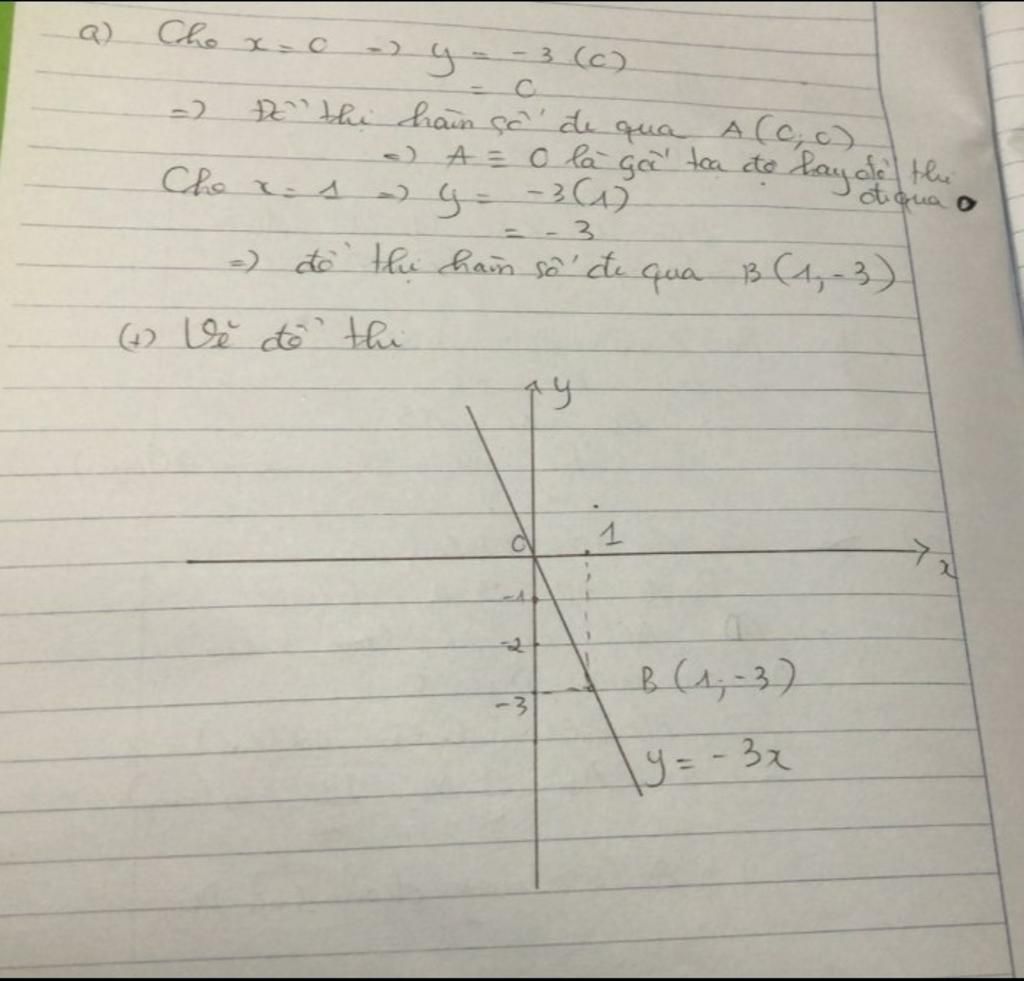 a) Cho x = 0 => y = -3(0)
= 0
=> Đồ thị hàm số đi qua A(0,0)
=> A ≡ O là gốc tọa độ hay đồ thị
đi qua O
Cho x = 1 => y = -3(1)
= -3
=> đồ thị hàm số đi qua B(1,-3)
(+) Vẽ đồ thị
y
O
1
x
-1
-2
B(1,-3)
-3
y = -3x